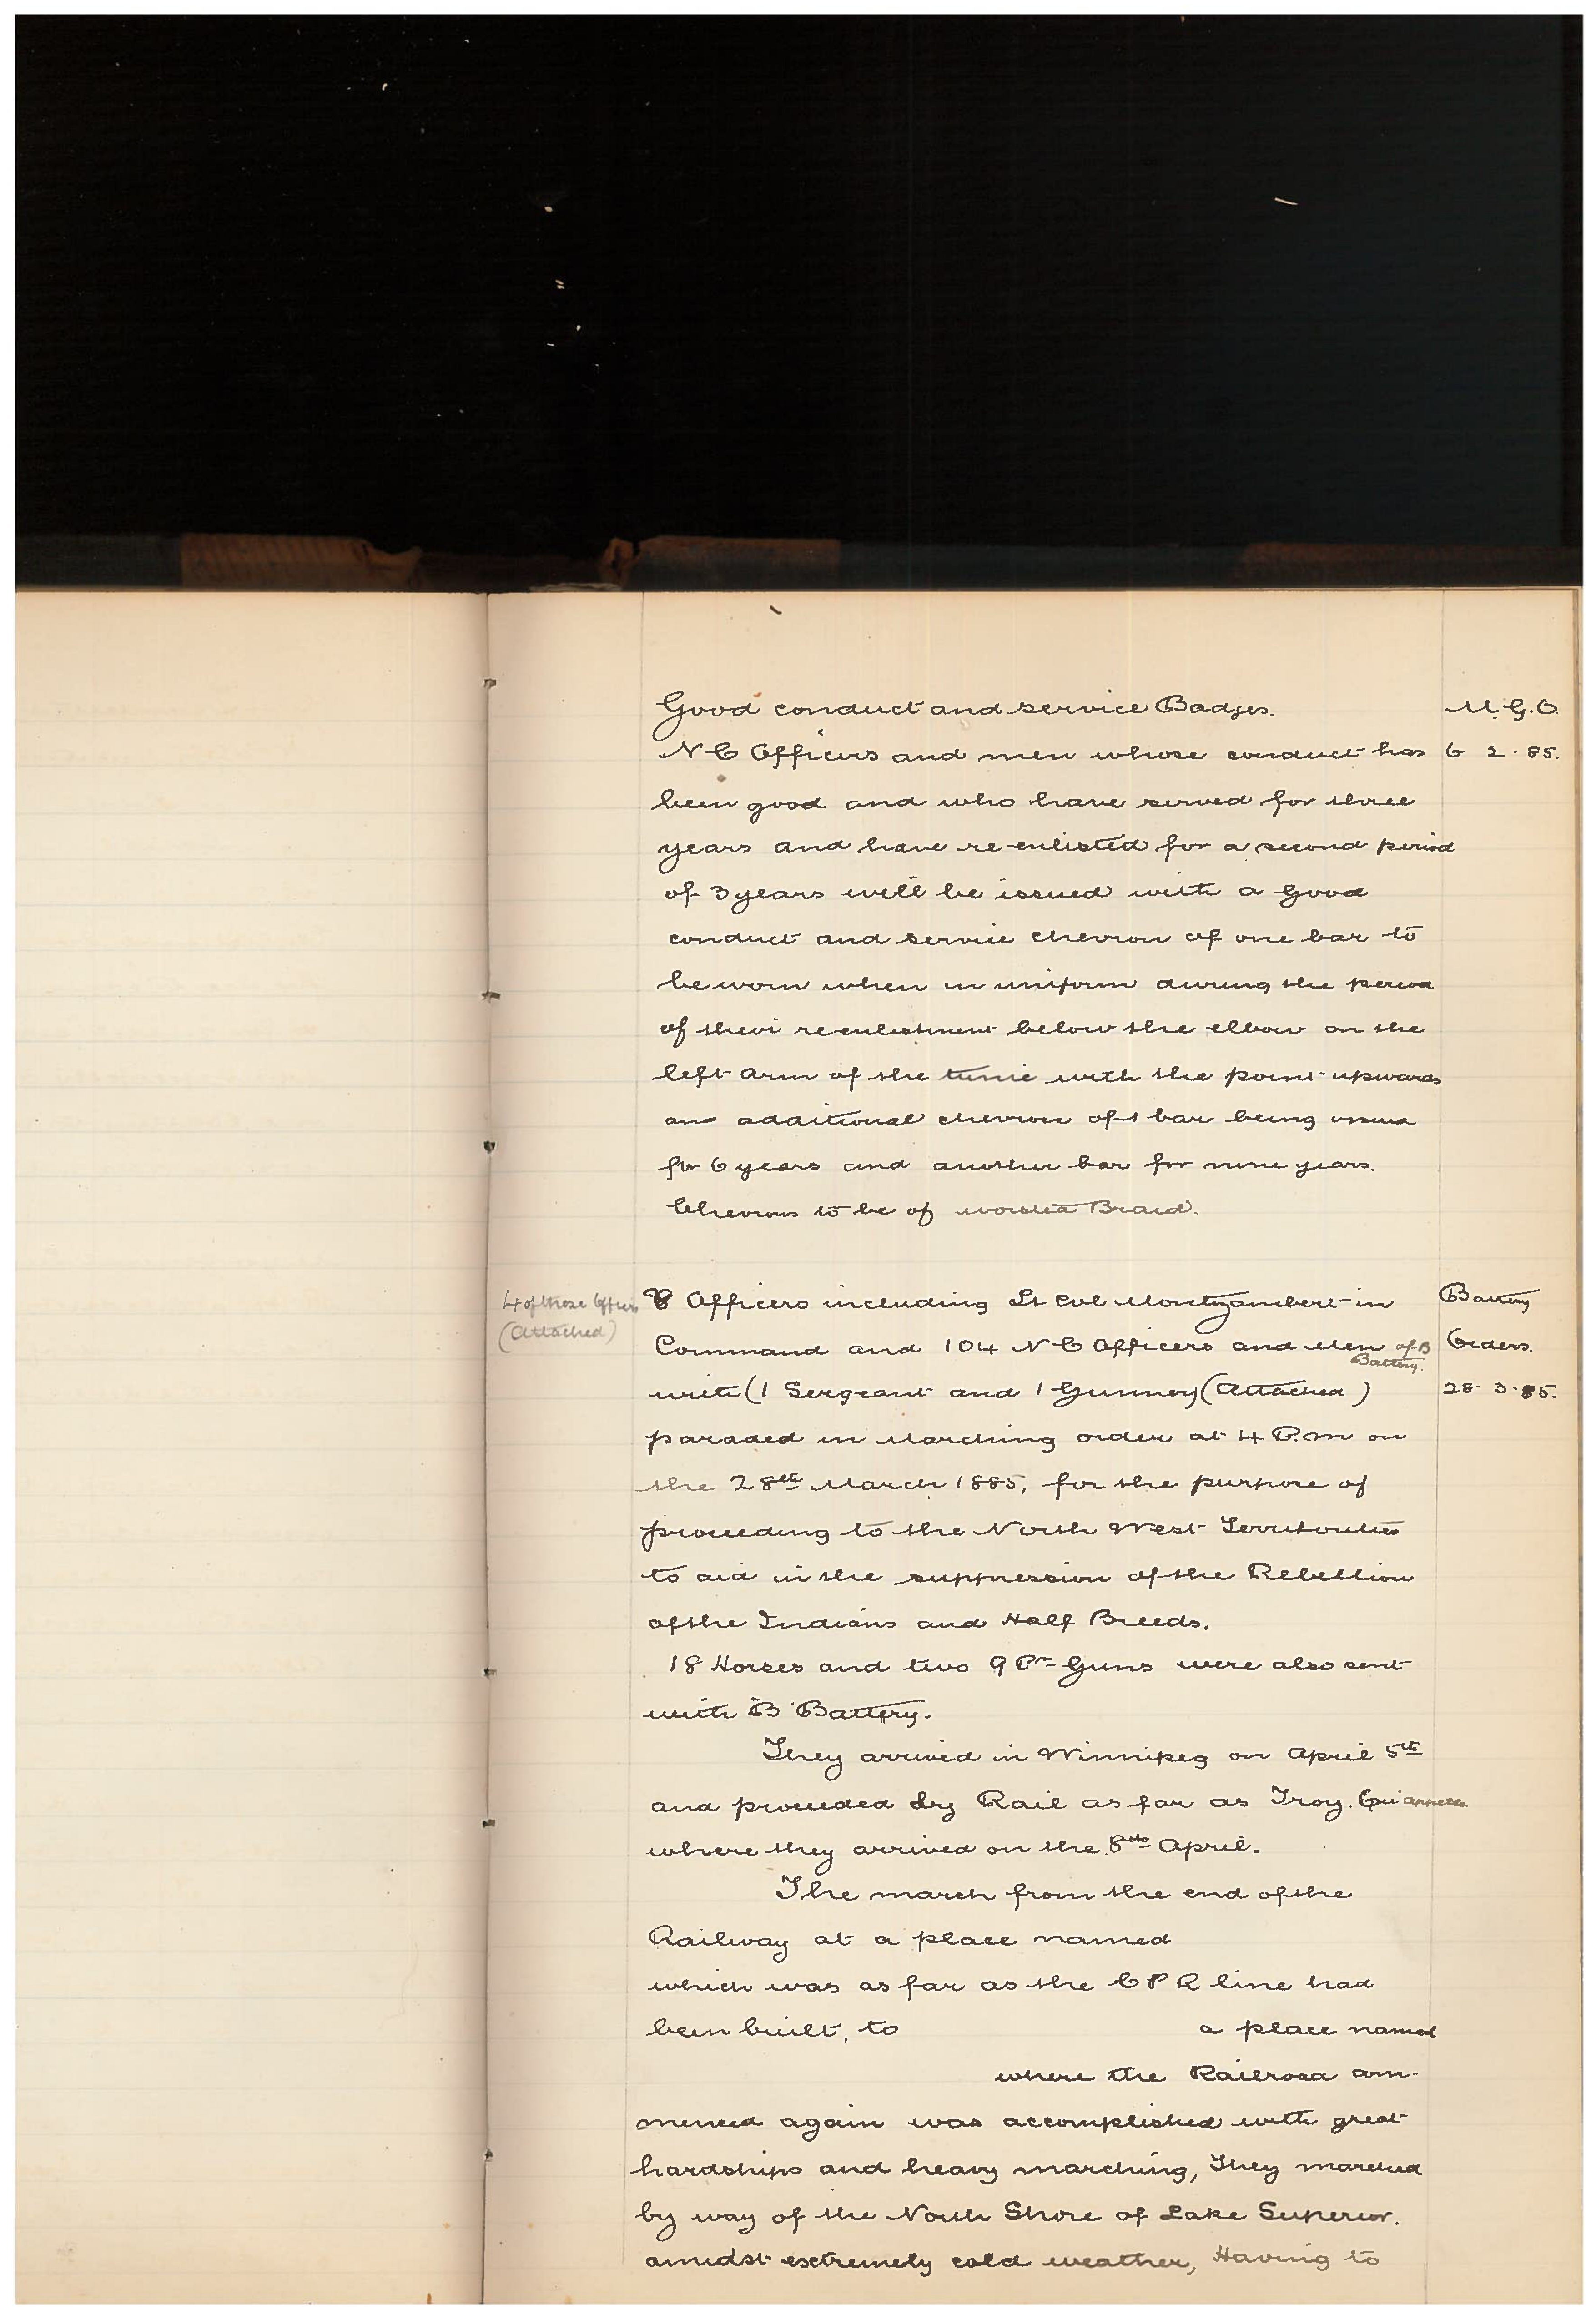 Good conduct and service Badges. M.G.O.
N C Officers and men whose conduct has 6 2 . 85.
been good and who have served for three
years and have re-enlisted for a second period
of 3 years will be issued with a good
conduct and service chevron of one bar to
be worn when in uniform during the period
of their re-enlistment below the elbow on the
left arm of the tunic with the point upwards
an additional chevron of 1 bar being issued
for 6 years and another bar for nine years.
Chevrons to be of worsted Braid.
4 of these Officers
(Attached)
8 Officers including Lt Col Montizambert in Battery
Command and 104 N C Officers and Men of B Battery. Orders.
with (1 Sergeant and 1 Gunner) (Attached) 28. 3. 85.
paraded in Marching order at 4 P.m on
the 28th March 1885, for the purpose of
proceeding to the North West Territories
to aid in the suppression of the Rebellion
of the Indians and Half Breeds.
18 Horses and two 9 Pr Guns were also sent
with B Battery.
They arrived in Winnipeg on April 5th
and proceeded by Rail as far as Troy. Qu'appelle
where they arrived on the 8th April.
The march from the end of the
Railway at a place named
which was as far as the C P R line had
been built, to a place named
where the Railroad com-
menced again was accomplished with great
hardships and heavy marching, They marched
by way of the North Shore of Lake Superior.
amidst extremely cold weather, Having to